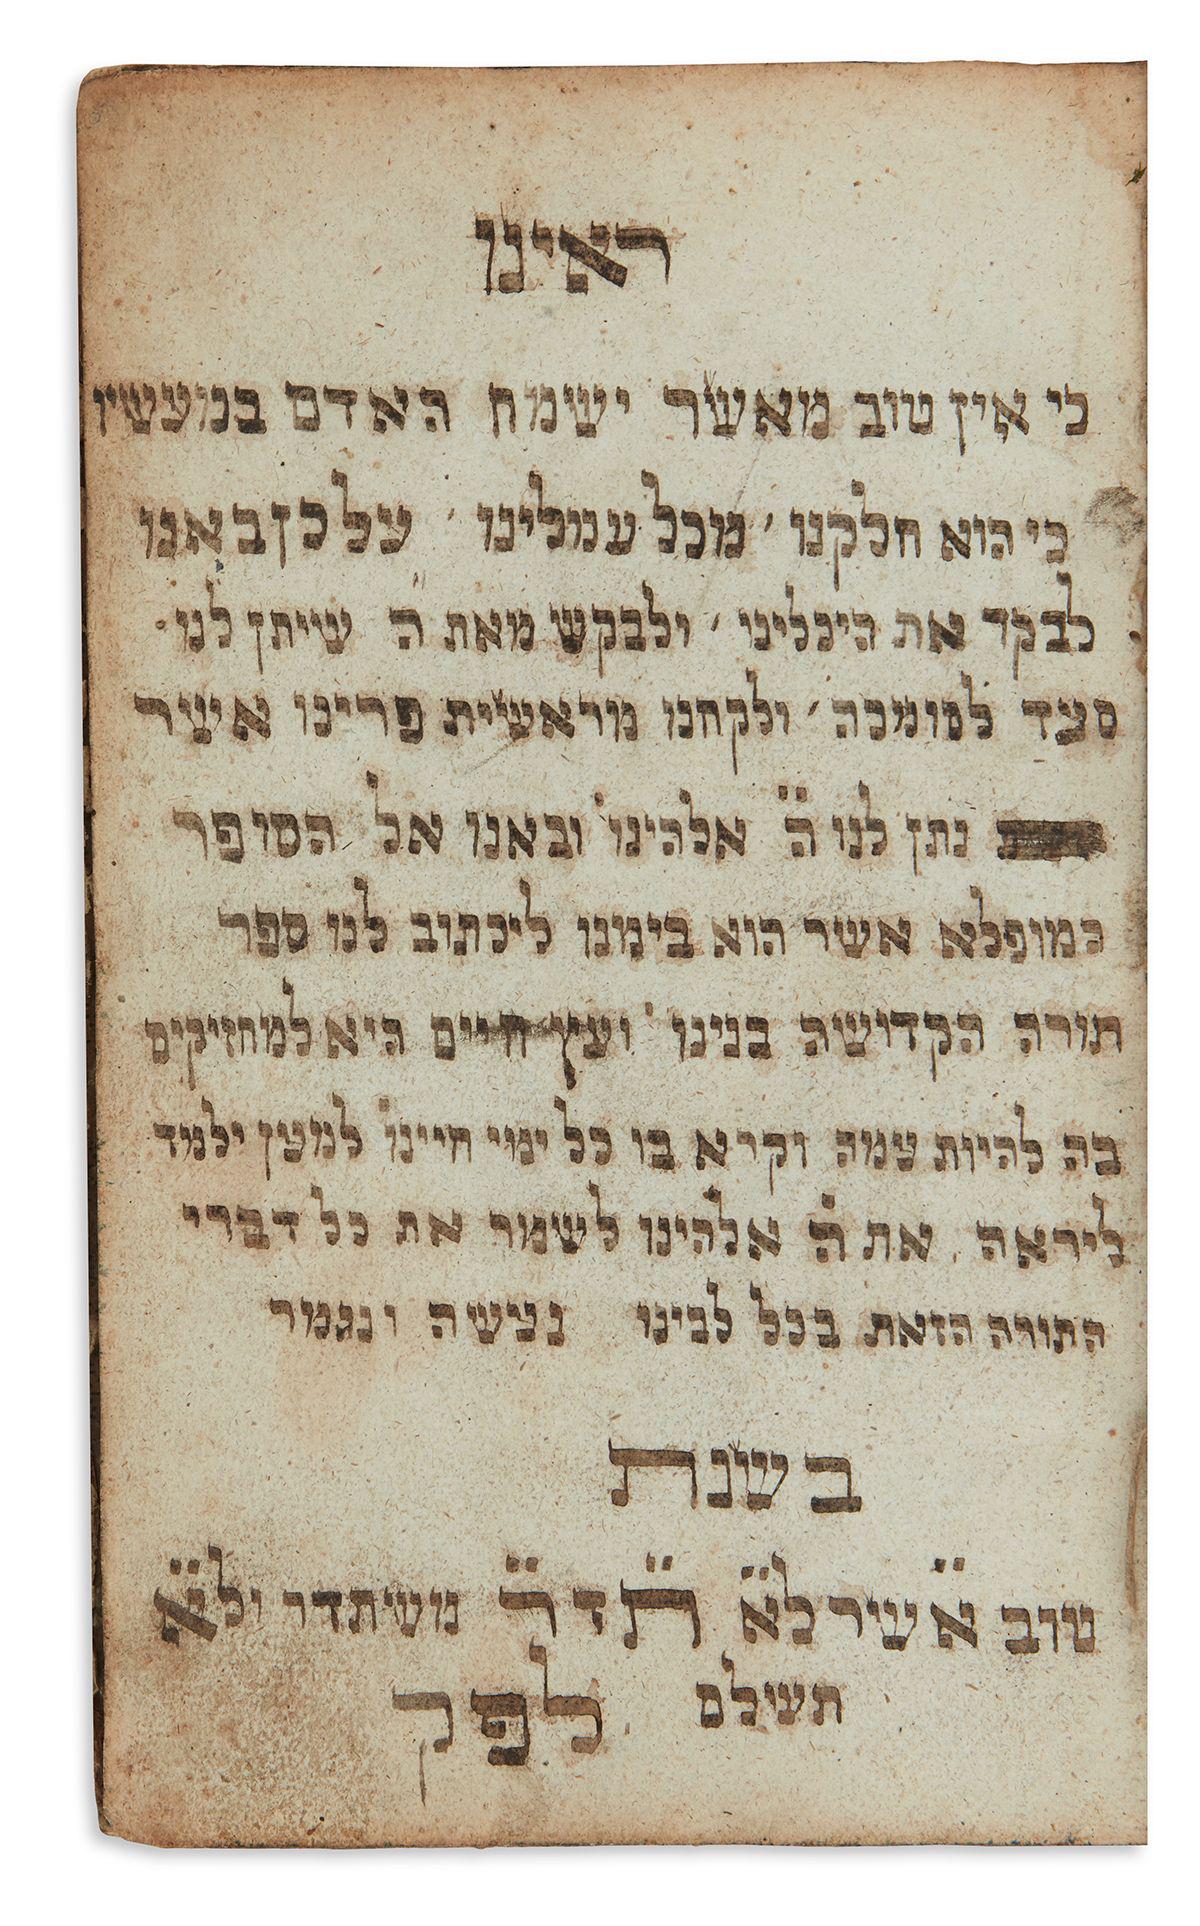 ראינו
כי אין טוב מאשר ישמח האדם במעשיו
כי הוא חלקנו ׳ מכל עמלינו ׳ על כן באנו
לבקר את היכלינו ׳ ולבקש מאת ה״ שיתן לנו
סעד לסומכה ׳ ולקחנו מראשית פרינו אשר
נתן לנו ה̈ אלהינו ובאנו אל הסופר
המופלא אשר הוא בימנו ליכתוב לנו ספר
תורה הקדושה בנינו ׳ ועץ חיים היא למחזיקים
בה להיות עמה וקרא בו כל ימי חיינו למען ילמד
ליראה את ה̇ אלהינו לשמר את כל דברי
התורה הזאת בכל לבינו נעשה ונגמר
בשנת
טוב א̈שר לא̈ ת̈דר̈ משיתדר ולא̈
תשלם לפק